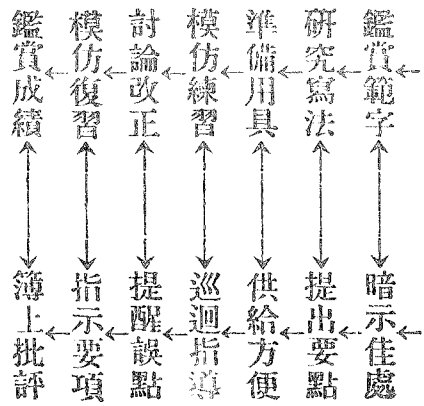 鑑賞範字
研究寫法
準備用具
模仿練習
討論改正
模仿復習
鑑賞成績
暗示佳處
提出要點
供給方便
巡迴指導
提醒誤點
指示要項
簿上批評